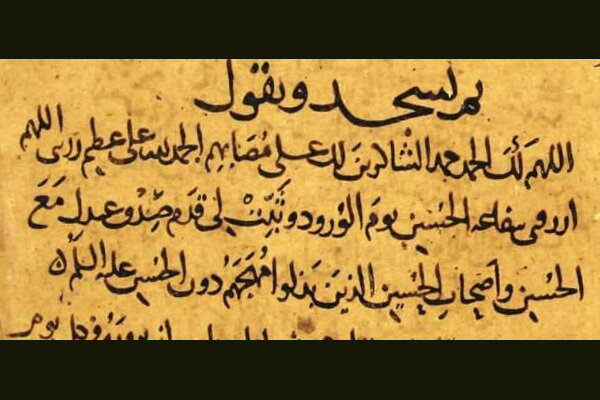 ثم تسجد وتقول
اللهم لك الحمد حمد الشاكرين لك على مصابهم الحمد لله على عظيم رزيتى اللهم
ارزقنى شفاعة الحسين يوم الورود وثبت لى قدم صدق عندك مع
الحسين واصحاب الحسين الذين بذلوا مهجهم دون الحسين عليه السلم